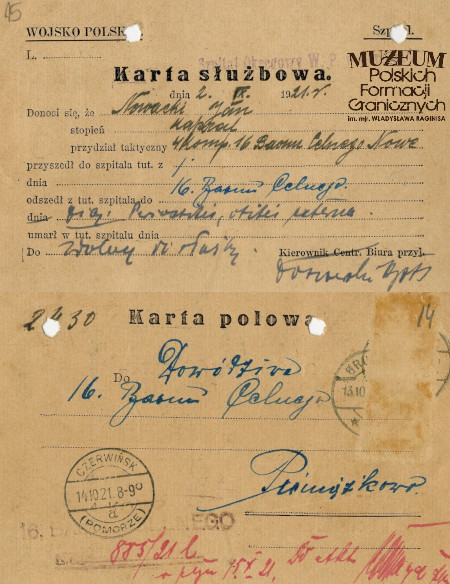 45
WOJSKO POLSKIE
Szpital
L.
Szpital Okręgowy W. P.
MUZEUM
Polskich
Formacji
Granicznych
im. mjr. WŁADYSŁAWA RAGINISA
Karta służbowa.
dnia 2. IX. 1921 r.
Donosi się, że Nowacki Jan
stopień kapral
przydział taktyczny 4 komp. 16 Baonu Celnego Nowe
przyszedł do szpitala tut. z
dnia
odszedł z tut. szpitala do 16. Baonu Celnego.
dnia
umarł w tut. szpitalu dnia
Do
Kierownik Centr. Biura przyl.
2430
Karta polowa
14
Do Dowództwa
16. Baonu Celnego
BRO
13.10
CZERWIŃSK
14.10.21. 8-9
a
(POMORZE)
Pieniążkowo
16. B NEGO
855/21 l
15.X.21.